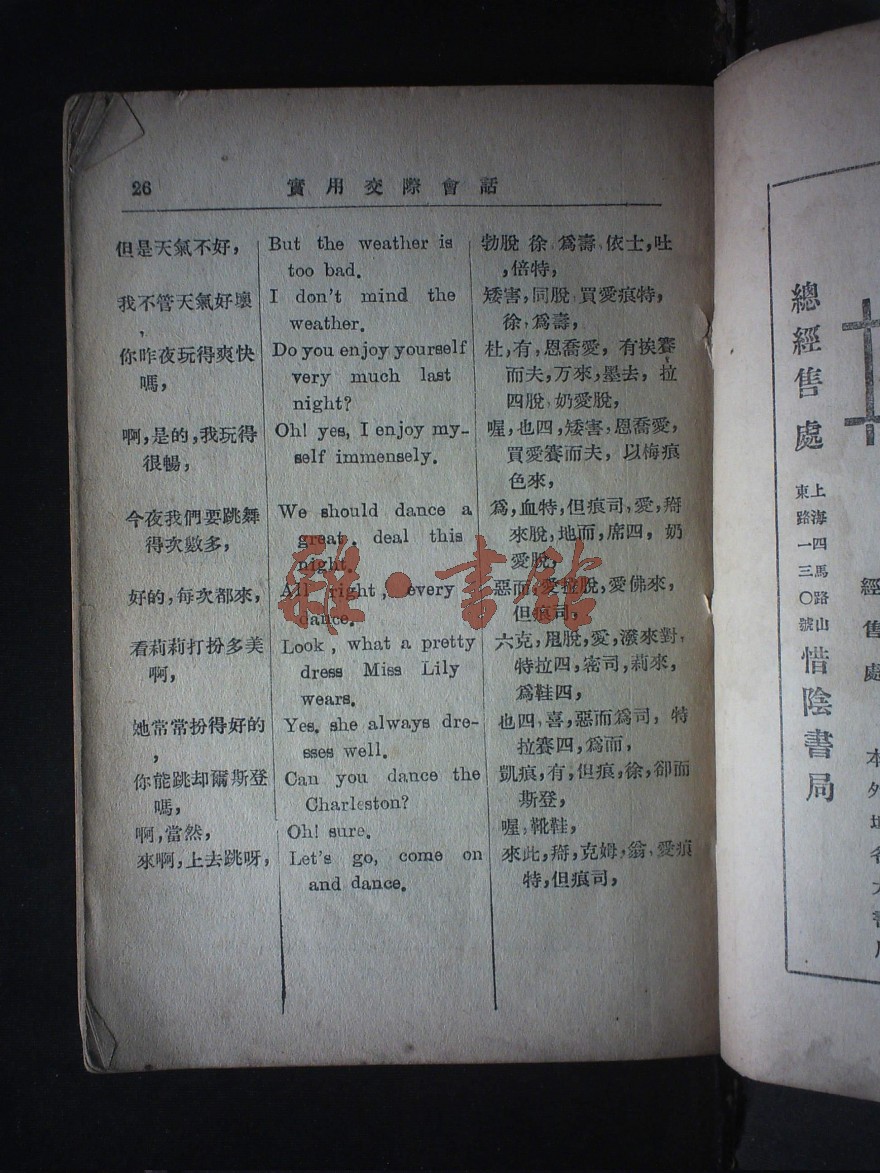 26 實用交際會話
但是天氣不好, But the weather is 勃脫 徐,爲壽,依士,吐
too bad. ,倍特,
我不管天氣好壞 I don't mind the 矮害,同脫,買愛痕特,
, weather. 徐,爲壽,
你昨夜玩得爽快 Do you enjoy yourself 杜,有,恩喬愛,有挨賽
嗎, very much last 而夫,万來,墨去,拉
night? 四脫,奶愛脫,
啊,是的,我玩得 Oh! yes, I enjoy my- 喔,也四,矮害,恩喬愛,
很暢, self immensely. 買愛賽而夫,以梅痕
色來,
今夜我們要跳舞 We should dance a 爲,血特,但痕司,愛,搿
得次數多, great. deal this 來脫,地而,席四,奶
night. 愛脫,
好的,每次都來, All right, every 惡而,愛拉脫,愛佛來,
dance. 但痕司,
看莉莉打扮多美 Look, what a pretty 六克,凮脫,愛,潑來對,
啊, dress Miss Lily 特拉四,密司,莉來,
wears. 爲鞋四,
她常常扮得好的 Yes. she always dre- 也四,喜,惡而爲司,特
, sses well. 拉賽四,爲而,
你能跳却爾斯登 Can you dance the 凱痕,有,但痕,徐,卻而
嗎, Charleston? 斯登,
啊,當然, Oh! sure. 喔,靴鞋,
來啊,上去跳呀, Let's go, come on 來此,搿,克姆,翁,愛痕
and dance. 特,但痕司,
雅·書館
總經售處
上海四馬路山
東路一三〇號
惜陰書局
經售處
本外埠各大書局